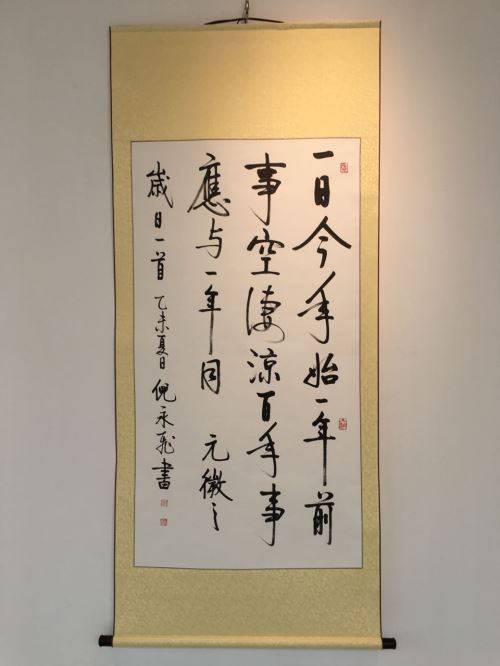 一日今年始一年前
事空淒涼百年事
應与一年同 元微之
歲日一首 乙未夏日 倪永飛書